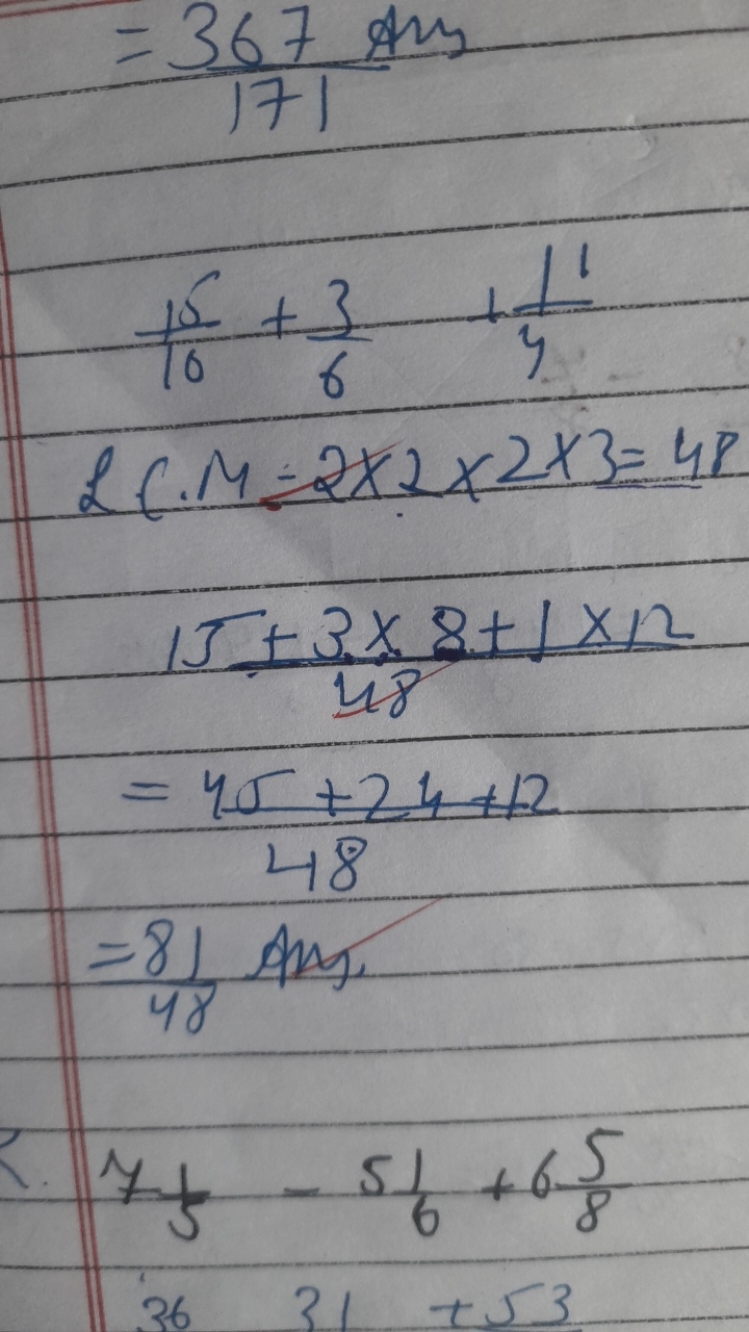 = 367 Ans
171
15 + 3 + 11
16 6 4
L C.M = 2×2×2×3 = 48
15 + 3 × 8 + 1 × 12
48
= 45 + 24 + 12
48
= 81 Ans.
48
7 1/5 - 5 1/6 + 6 5/8
36 31 + 53